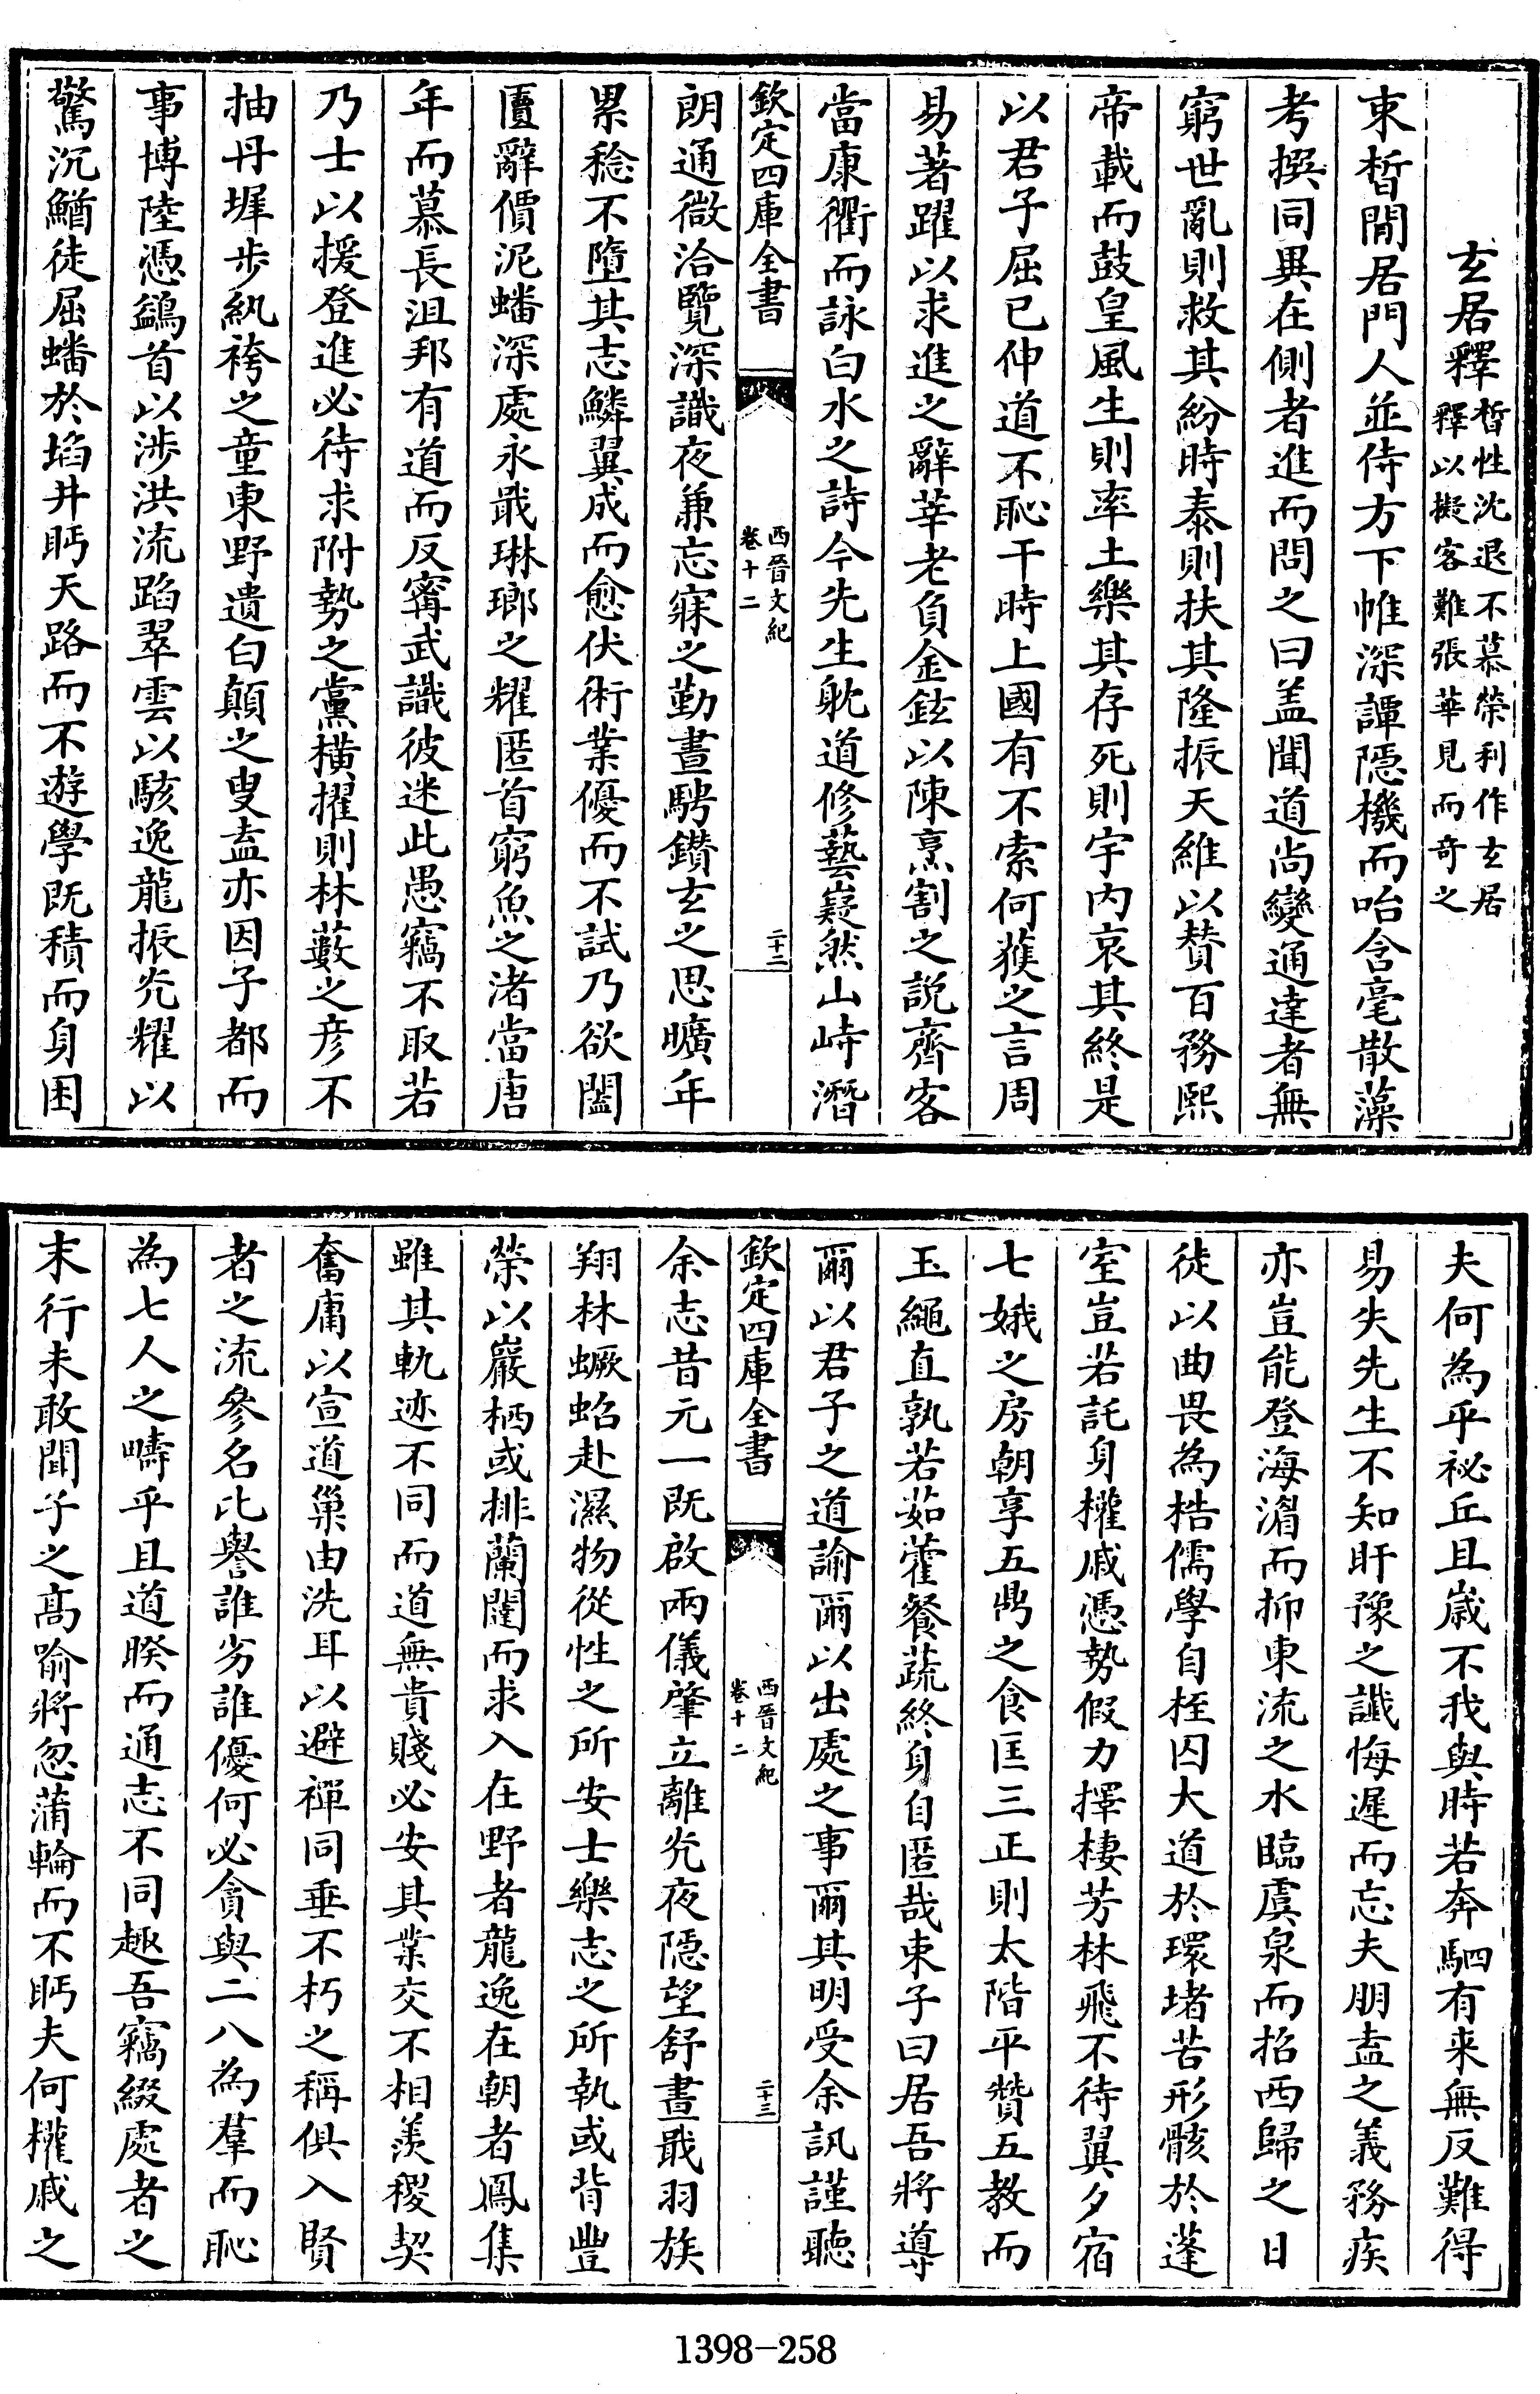 玄居釋晳性沈退不慕榮利作玄居釋以擬客難張華見而奇之
束晳閒居門人並侍方下帷深譚隱機而咍含毫散藻
考撰同異在側者進而問之曰盖聞道尚變通達者無
窮世亂則救其紛時泰則扶其隆振天維以賛百務熙
帝載而鼓皇風生則率土樂其存死則宇内哀其終是
以君子屈已伸道不恥干時上國有不索何獲之言周
易著躍以求進之辭莘老負金鉉以陳烹割之説齊客
當康衢而詠白水之詩今先生躭道修藝嶷然山峙潛
欽定四庫全書
西晉文紀
卷十二
二十二
朗通微洽覽深識夜兼忘寐之勤晝騁鑽玄之思曠年
累稔不墮其志鱗翼成而愈伏術業優而不試乃欲闔
匵辭價泥蟠深處永戢琳瑯之耀匿首窮魚之渚當唐
年而慕長沮邦有道而反甯武識彼迷此愚竊不取若
乃士以援登進必待求附勢之黨横擢則林藪之彦不
抽丹墀步紈袴之童東野遺白顛之叟盍亦因子都而
事博陸憑鷁首以涉洪流蹈翠雲以駭逸龍振光耀以
驚沉鰌徒屈蟠於埳井眄天路而不遊學既積而身困
夫何為乎祕丘且嵗不我與時若奔駟有来無反難得
易失先生不知盱豫之讖悔遲而忘夫朋盍之義務疾
亦豈能登海湄而抑東流之水臨虞泉而招西歸之日
徒以曲畏為梏儒學自桎囚大道於環堵苦形骸於蓬
室豈若託身權戚憑勢假力擇棲芳林飛不待翼夕宿
七娥之房朝享五鼎之食匡三正則太階平贊五教而
玉繩直孰若茹藿餐蔬終身自匿哉束子曰居吾將導
爾以君子之道諭爾以出處之事爾其明受余訊謹聽
欽定四庫全書
西晉文紀
卷十二
二十三
余志昔元一既啟兩儀肇立離光夜隱望舒晝戢羽族
翔林蟩蛁赴濕物從性之所安士樂志之所執或背豐
榮以巖栖或排蘭闥而求入在野者龍逸在朝者鳳集
雖其軌迹不同而道無貴賤必安其業交不相羨稷契
奮庸以宣道巢由洗耳以避禪同垂不朽之稱俱入賢
者之流參名比譽誰劣誰優何必貪與二八為羣而恥
為七人之疇乎且道睽而通志不同趣吾竊綴處者之
末行未敢聞子之高喻將忽蒲輪而不眄夫何權戚之
1398-258